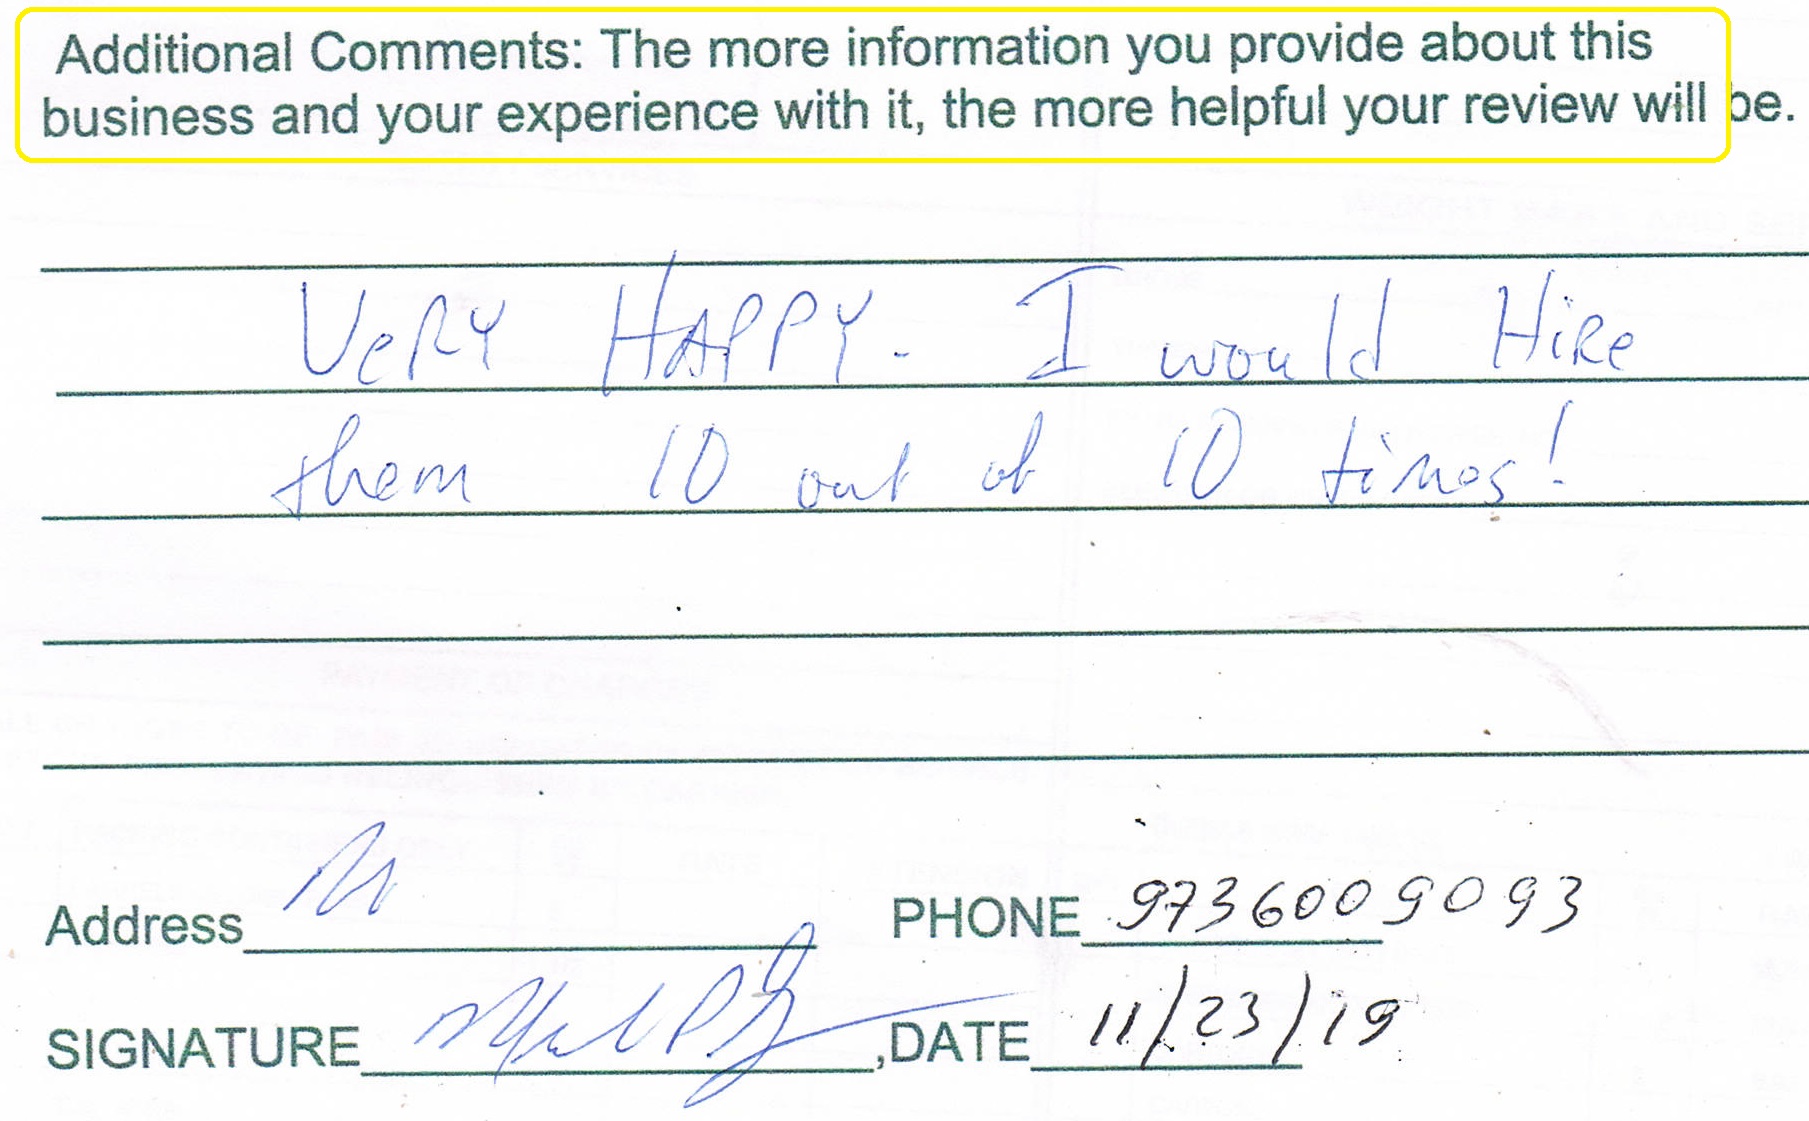 Additional Comments: The more information you provide about this
business and your experience with it, the more helpful your review will be.
VeRY HAPPY. I would HiRe
them 10 out of 10 times!
Address PHONE 9736009093
SIGNATURE ,DATE 11/23/19